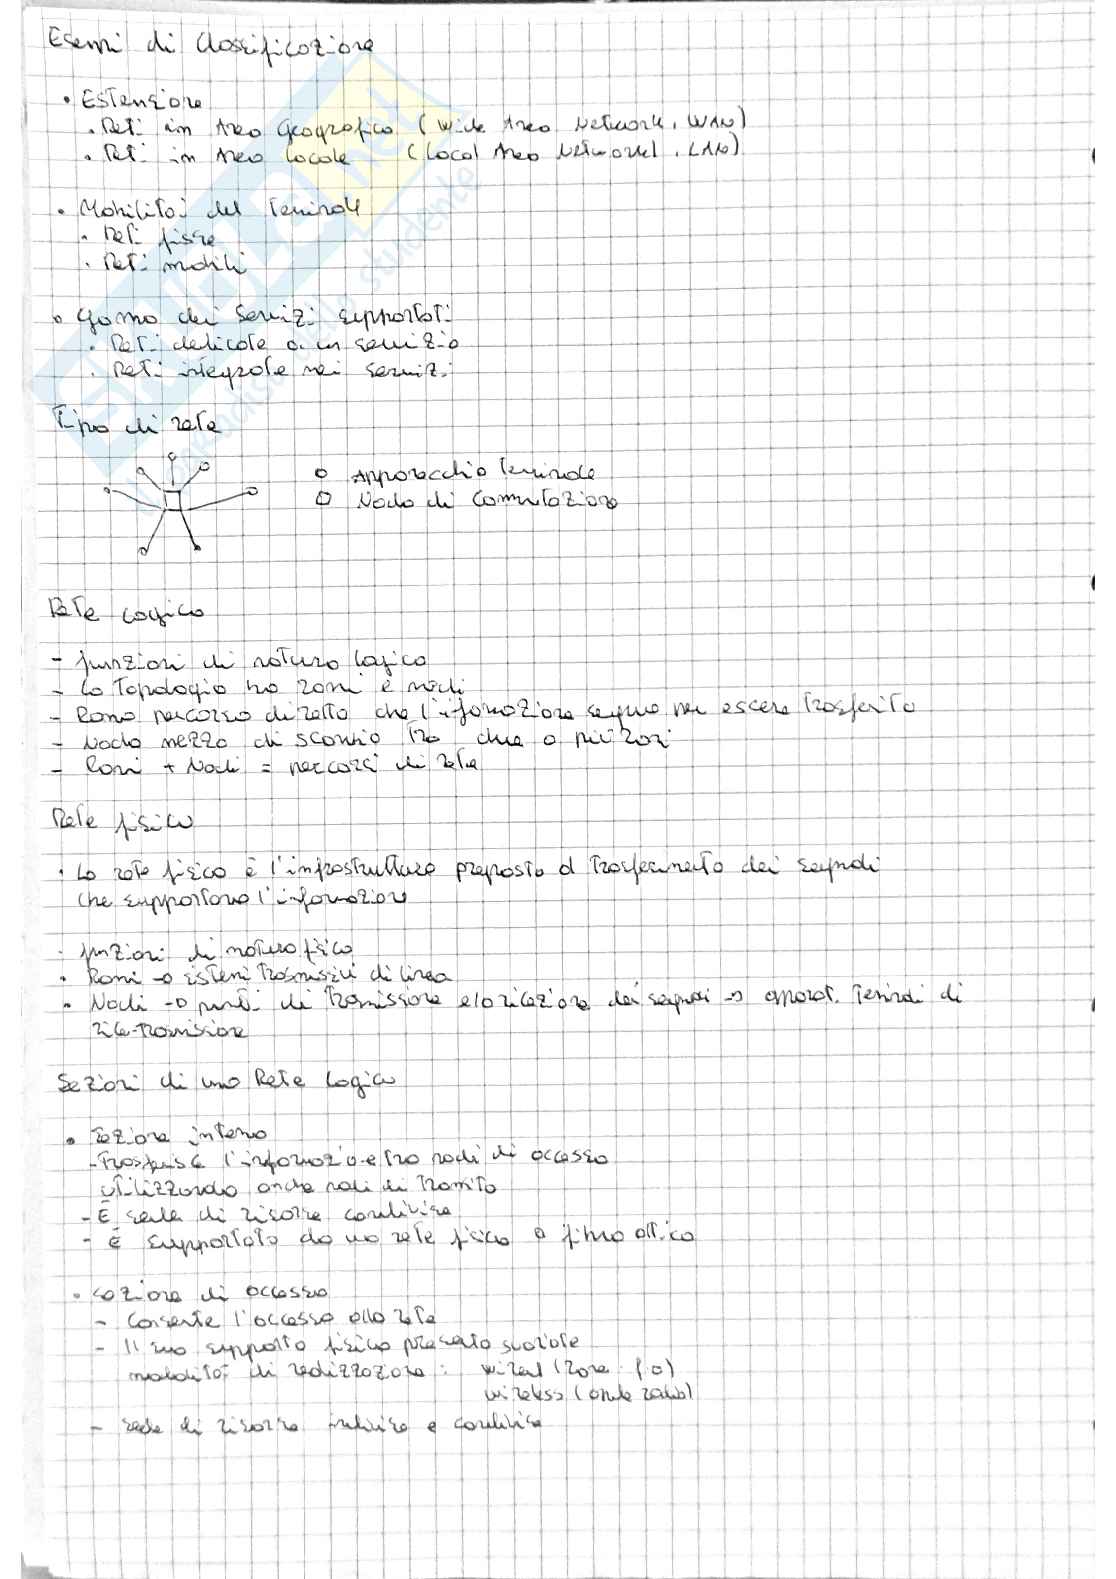 Esempi di Classificazione
• Estensione
• Reti in Area Geografica (Wide Area Network, WAN)
• Reti in Area Locale (Local Area Network, LAN)
• Mobilità del Terminale
• Reti fisse
• Reti mobili
• Gamma dei Servizi supportati
• Reti dedicate a un servizio
• Reti integrate nei servizi
Tipo di rete
○ Apparecchio Terminale
□ Nodo di Commutazione
Rete Logica
- funzioni di natura logica
- La Topologia ha rami e nodi
- Ramo percorso diretto che l'informazione segue per essere trasferita
- Nodo mezzo di scambio tra due o più rami
- Rami + Nodi = percorsi di rete
Rete fisica
• La rete fisica è l'infrastruttura preposta al trasferimento dei segnali
che supportano l'informazione
• funzioni di natura fisica
• Rami → sistemi trasmissivi di linea
• Nodi → punti di Tramissione e di dei segnali → apparat. Terminali di
ri-Tramissione
Sezioni di una Rete Logica
• Sezione interna
- Trasferisce l'informazione tra nodi di accesso
utilizzando anche nodi di Transito
- È sede di risorse condivise
- È supportata da una rete fisica a fibra ottica
• Sezione di accesso
- Consente l'accesso alla rete
- Il suo supporto fisico presenta svariate
modalità di realizzazione: wired (rame f.o)
wireless (onde radio)
- sede di risorse indivise e condivise
SKUOLA.net
il paradiso dello studente